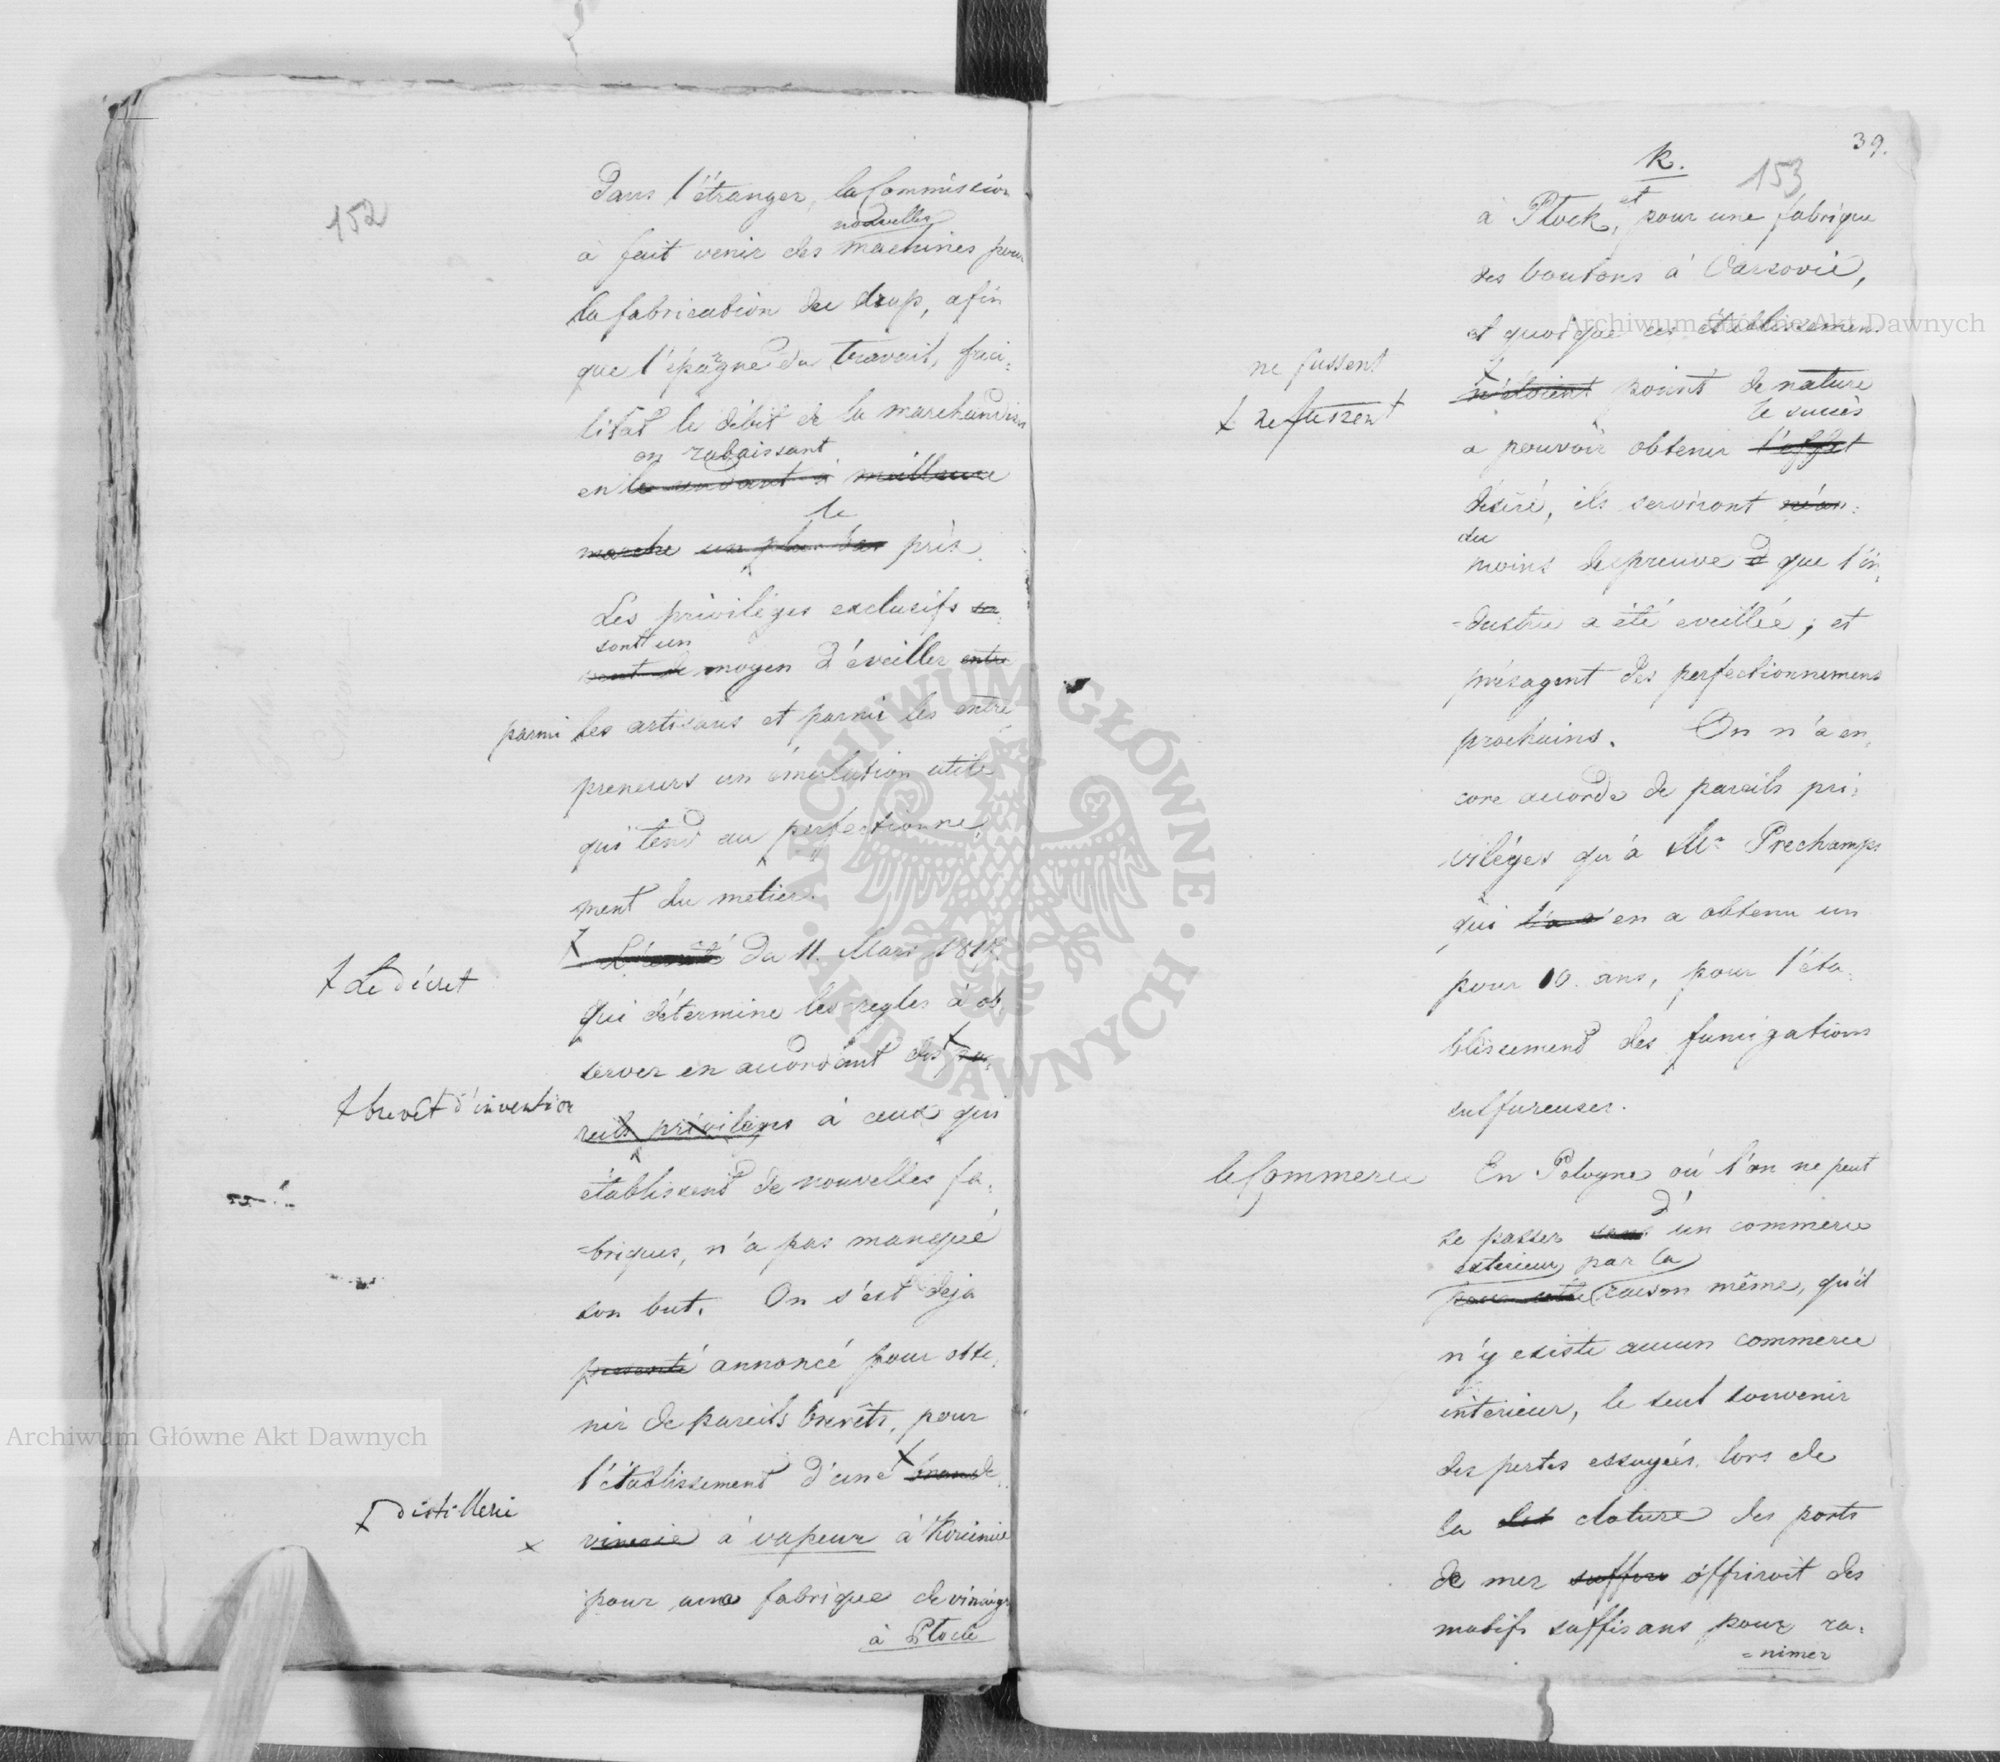 152
dans l'étranger, la Commission
nouvelles
a fait venir des machines pour
la fabrication du drap, afin
que l'épargne du travail, faci-
litat le débit de la marchandise
en rabaissant
en le vendant à meilleure
le
marche un plus bas prix.
Les privilèges exclusifs
sont un
sont le moyen d'éveiller entre
parmi les artisans et parmi les entre
preneurs un émulation utile
qui tend au perfectionne,
ment du metier.
L'arrêté du 11. Mars 1817.
+ Le décret
qui détermine les regles à ob,
server en accordant des pa,
+ brevêt d'invention
reils privilèges à ceux qui
établissent de nouvelles fa,
-briques, n'a pas manqué
son but. On s'est deja
presenté annoncé pour obte,
nir de pareils brevêts, pour
l'établissement d'une brande,
+ Distillerie
vinerie à vapeur à Kozienice
pour une fabrique de vinaigre
à Plock
39.
k.
153
et
à Plock, pour une fabrique
des boutons à Varsovie,
et quoique ces établissemens
ne fussent
n'étoient point de nature
+ ne fussent
le succès
a pouvoir obtenir l'effet
désiré, ils serviront néan-
du
moins de preuve que l'in,
-dustrie a été eveillée, et
présagent des perfectionnemens
prochains. On n'a en,
core accordé de pareils pri,
vilèges qu'à Mr Prechamps
qui en a obtenu un
pour 10. ans, pour l'éta,
blissement des fumigations
sulfureuses.
le Commerce
En Pologne où l'on ne peut
d'
se passer sans un commerce
exterieur, par la
pour cette raison même, qu'il
n'y existe aucun commerce
interieur, le seul souvenir
des pertes essuyées lors de
la des cloture des ports
de mer offriroit des
motifs suffisans pour ra,
=nimer
Archiwum Główne Akt Dawnych
Archiwum Główne Akt Dawnych
ARCHIWUM GŁÓWNE · AKT DAWNYCH ·